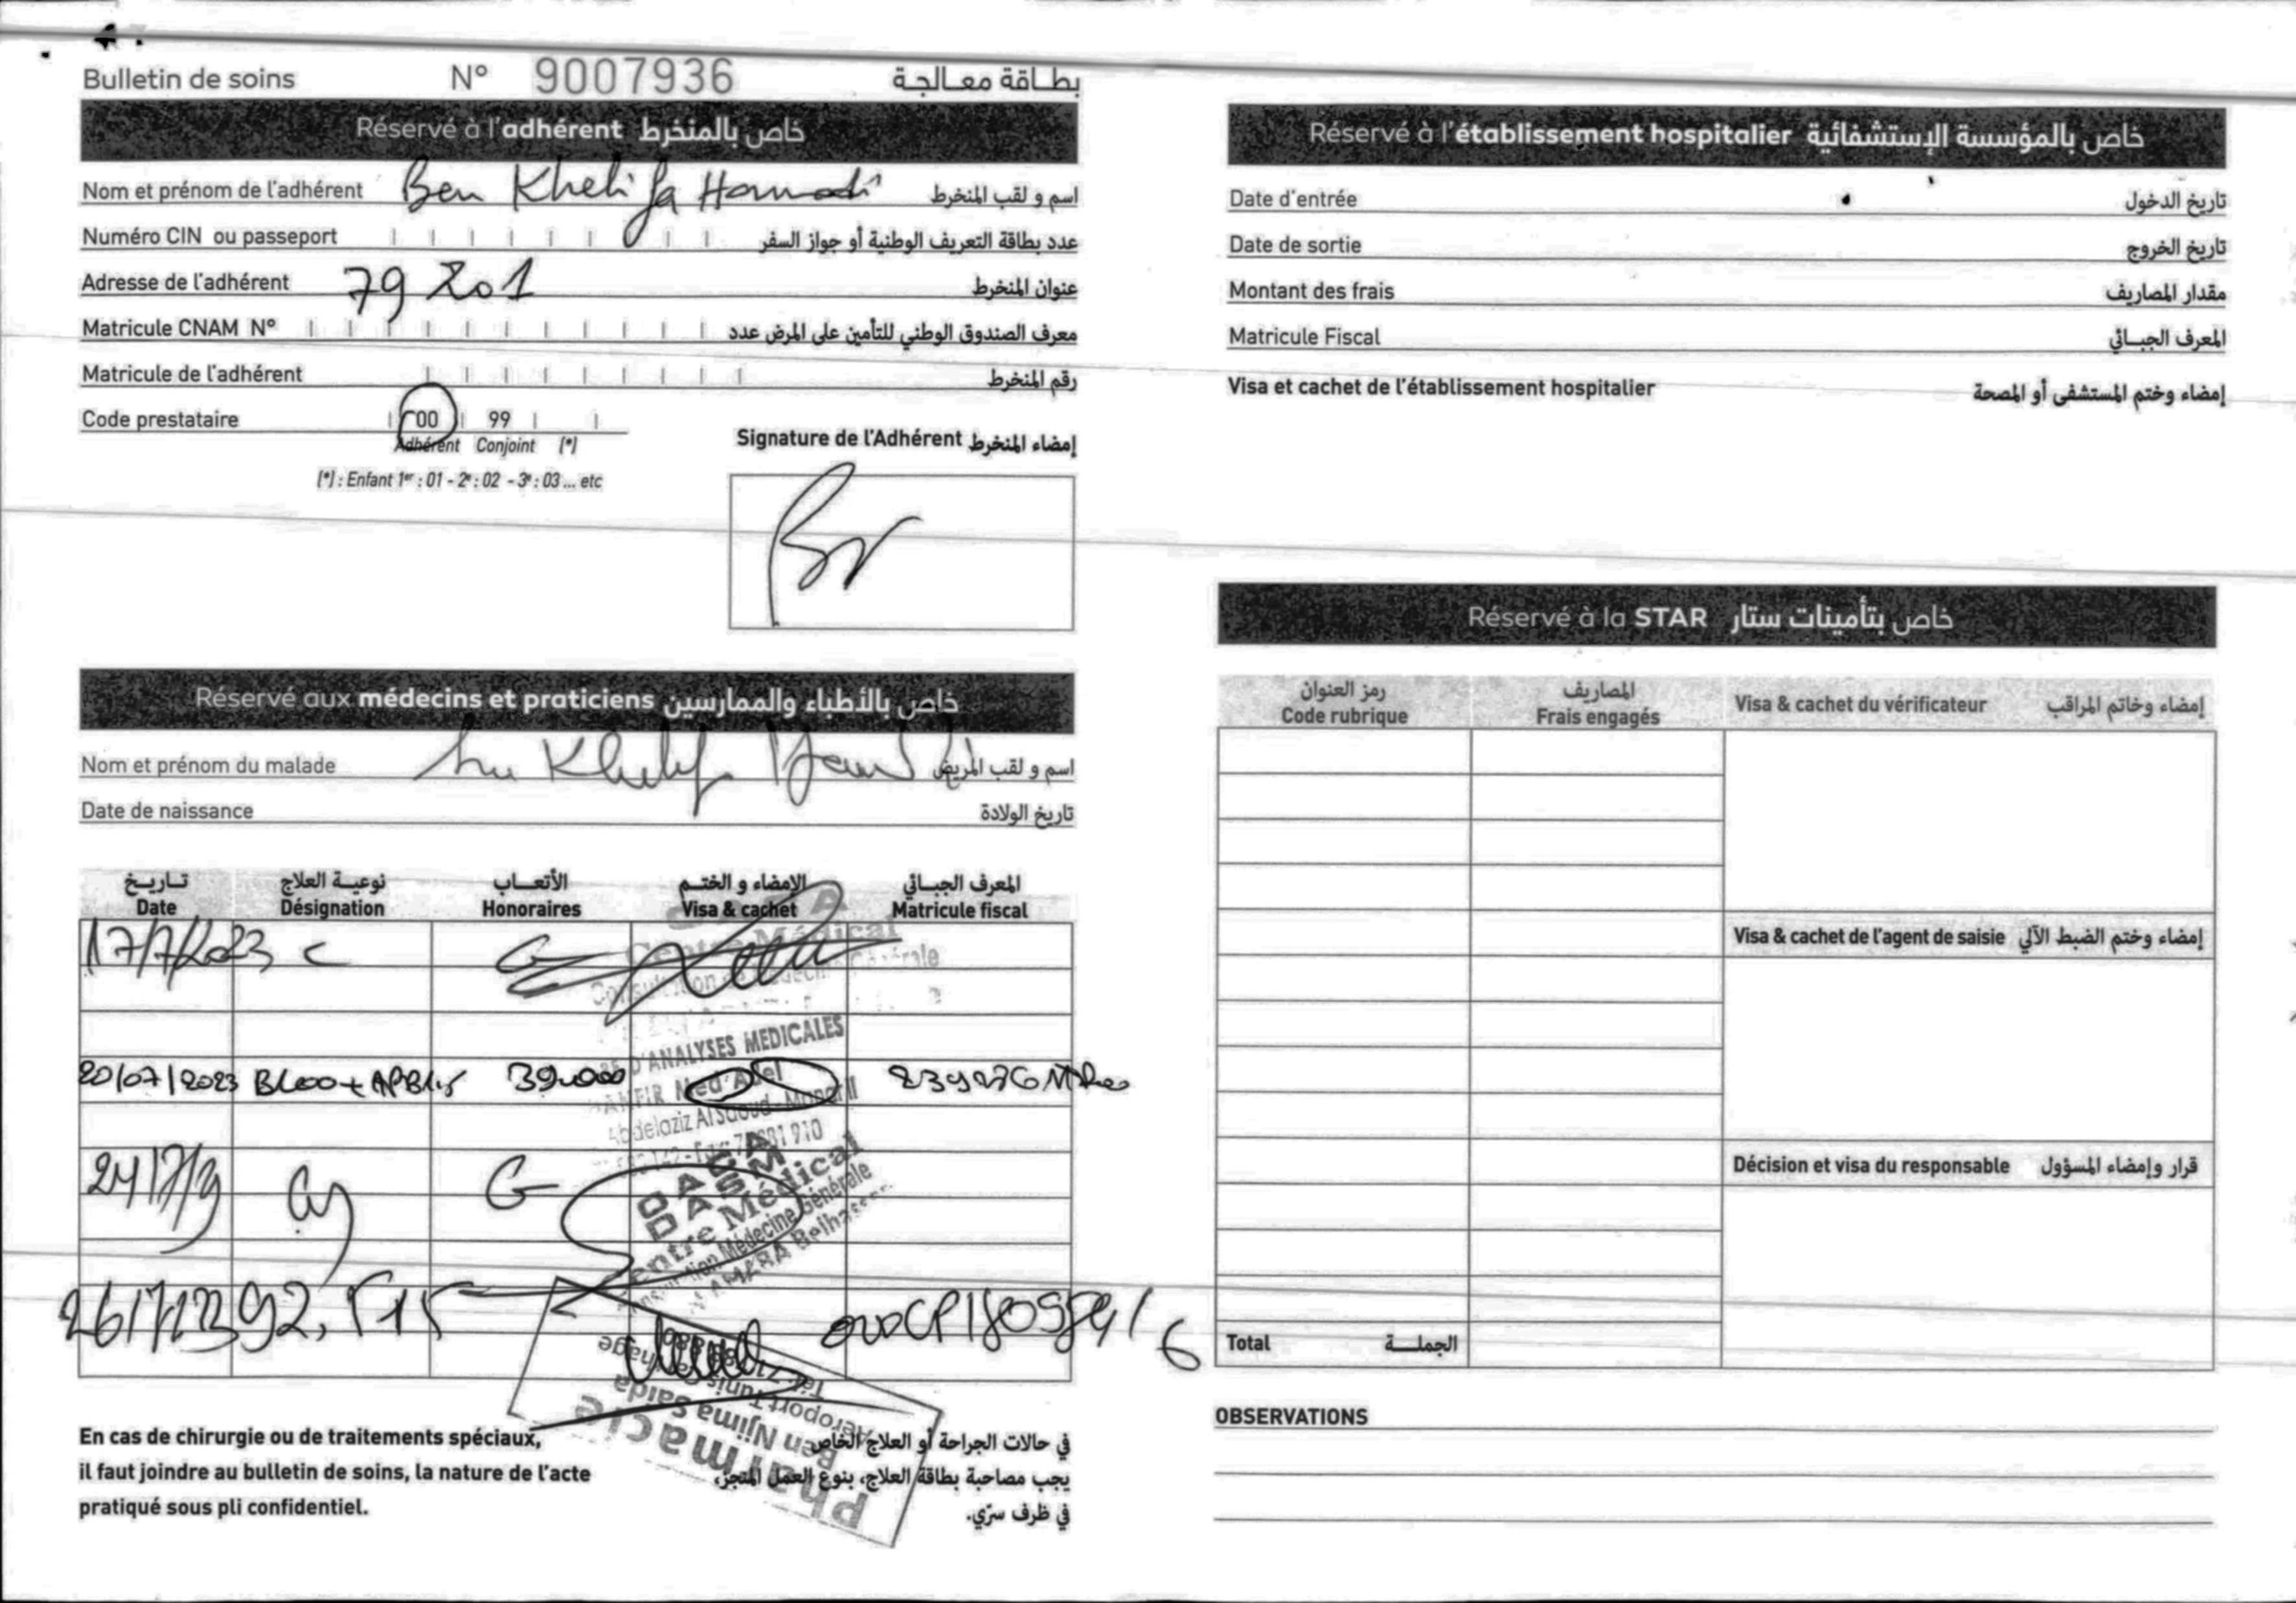 Bulletin de soins N° 9007936 بطاقة معالجة
Réservé à l'adhérent خاص بالمنخرط
Nom et prénom de l'adhérent Ben Khelifa Hamadi اسم و لقب المنخرط
Numéro CIN ou passeport عدد بطاقة التعريف الوطنية أو جواز السفر
Adresse de l'adhérent 79201 عنوان المنخرط
Matricule CNAM N° معرف الصندوق الوطني للتأمين على المرض عدد
Matricule de l'adhérent رقم المنخرط
Code prestataire 00 99
Adhérent Conjoint (*)
(*) : Enfant 1er : 01 - 2e : 02 - 3e : 03 ... etc
Signature de l'Adhérent إمضاء المنخرط
Réservé aux médecins et praticiens خاص بالأطباء والممارسين
Nom et prénom du malade اسم و لقب المريض
Date de naissance تاريخ الولادة
تاريخ نوعية العلاج الأتعاب الإمضاء و الختم المعرف الجبائي
Date Désignation Honoraires Visa & cachet Matricule fiscal
17/7/2023 c G
Centre Médical
D'ANALYSES MEDICALES
20/07/2023 39.000
Med Adel
Abdelaziz Al Saoud - Manar II
24/7/9 G
DASM
Centre Médical
Consultation Médecine Générale
AMARA Belhassen
26/7/23 92,515
Pharmacie
Ben Njima Saida
Aéroport Tunis Carthage
En cas de chirurgie ou de traitements spéciaux,
il faut joindre au bulletin de soins, la nature de l'acte
pratiqué sous pli confidentiel.
في حالات الجراحة أو العلاج الخاص
يجب مصاحبة بطاقة العلاج، بنوع العمل المنجز،
في ظرف سرّي.
Réservé à l'établissement hospitalier خاص بالمؤسسة الإستشفائية
Date d'entrée تاريخ الدخول
Date de sortie تاريخ الخروج
Montant des frais مقدار المصاريف
Matricule Fiscal المعرف الجبائي
Visa et cachet de l'établissement hospitalier إمضاء وختم المستشفى أو المصحة
Réservé à la STAR خاص بتأمينات ستار
رمز العنوان المصاريف
Code rubrique Frais engagés Visa & cachet du vérificateur إمضاء وخاتم المراقب
Visa & cachet de l'agent de saisie إمضاء وختم الضبط الآلي
Décision et visa du responsable قرار وإمضاء المسؤول
Total الجملة
OBSERVATIONS